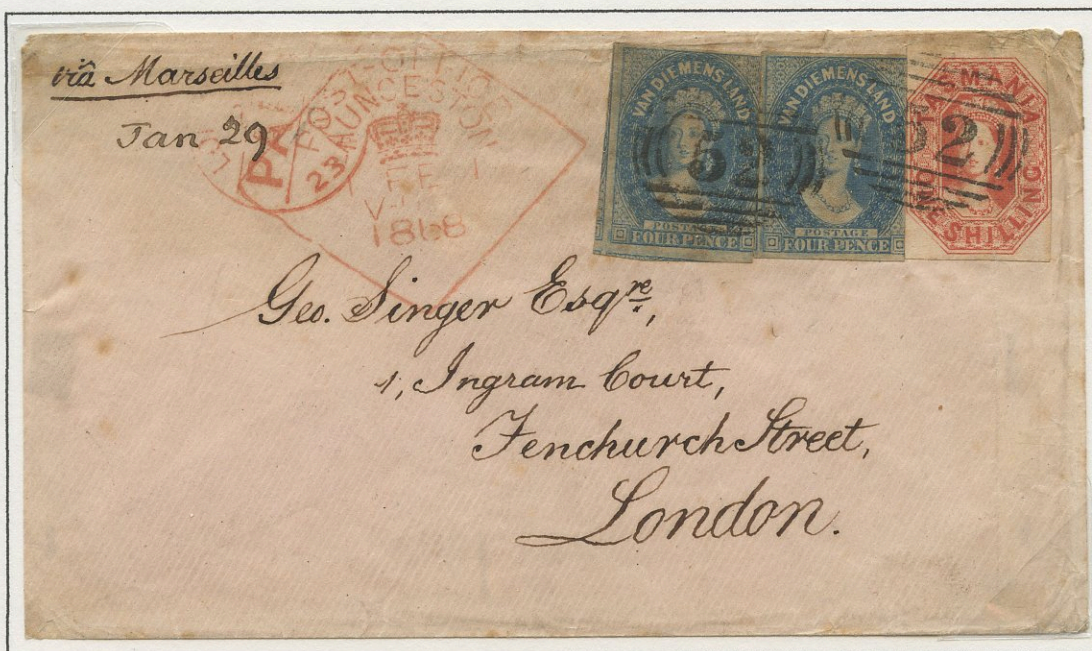 via Marseilles
Jan 29
POST-OFFICE
LAUNCESTON
PA
23
1868
VAN DIEMENS LAND
POSTAGE
FOUR PENCE
52
VAN DIEMENS LAND
POSTAGE
FOUR PENCE
52
TASMANIA
ONE SHILLING
Geo. Singer Esqre,
1, Ingram Court,
Fenchurch Street,
London.